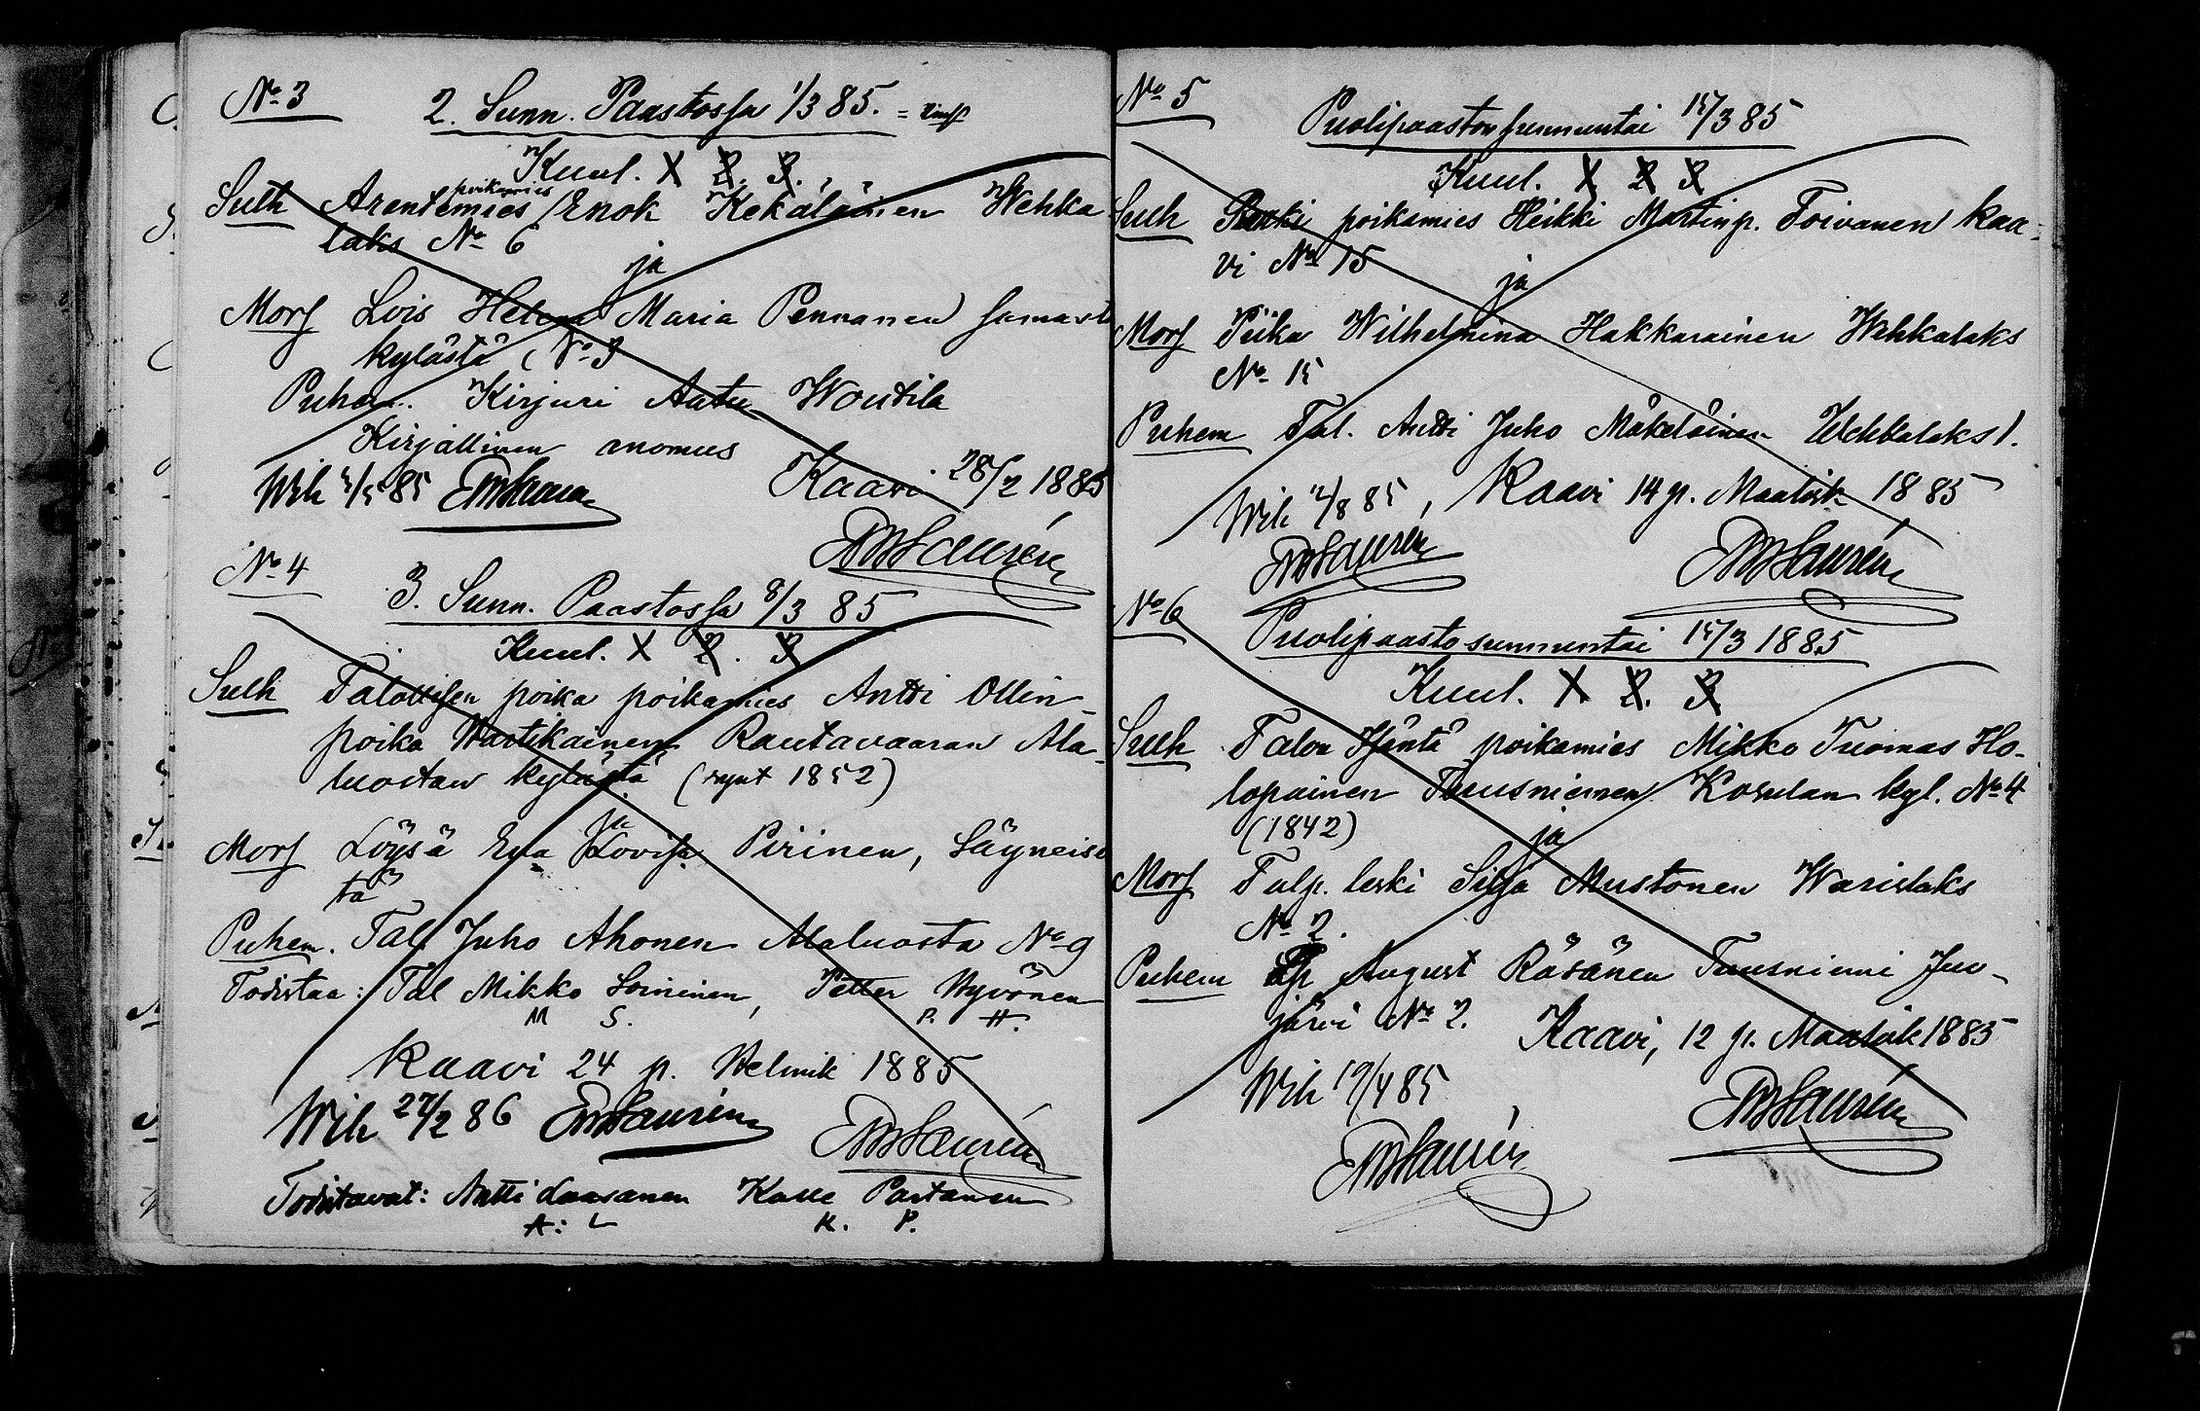 No 3
2. Sunn. Paastossa 1/3 85.
Kuul. X 2. 3.
poikamies
Sulh Arentimies Enok Kekäläinen Wehka
laks No 6
ja
Mors Lois Helena Maria Pennanen samast
kylästä No 3
Puhem. Kirjuri Aatu Woutila
Kirjallinen anomus
Kaavi 28/2 1885
Wih 85 EWLaurén
EWLaurén
No 4
3. Sunn. Paastossa 8/3 85
Kuul. X 2. 3
Sulh Talollisen poika poikamies Antti Ollin-
poika Wartikainen Rautavaaran Ala-
luostan kylästä (synt 1852)
ja
Mors Löysä Eva Lovisa Piirinen, Säyneis
tä
Puhem. Tal. Juho Ahonen Alaluosta No 9
Todistaa: Tal Mikko Soininen, Petter Hyvönen
M S. P. H.
Kaavi 24 p. Helmik 1885
Wih 27/2 86 EWLaurén
EWLaurén
Todistavat: Antti Laasanen Kalle Partanen
A: L K. P.
No 5
Puolipaaston sunnuntai 15/3 85
Kuul. X 2 3
Sulh Renki poikamies Heikki Martinp. Toivanen Kaa-
vi No 15
ja
Mors Piika Wilhelmina Hakkarainen Wehkalaks
No 15
Puhem Tal. Antti Juho Mäkeläinen Wehkalaks 1.
Kaavi 14 p. Maalisk 1885
Wih 85,
EWLaurén
EWLaurén
No 6
Puolipaasto sunnuntai 15/3 1885
Kuul. X 2. 3
Sulh Talon Isäntä poikamies Mikko Tuomas Ho-
lopainen Tuusniemen Kosulan kyl. No 4
(1842)
ja
Mors Talp. leski Silja Mustonen Warislaks
No 2.
Puhem Lp August Räsänen Tuusniemi Juo-
järvi No 2.
Kaavi, 12 p. Maalisk 1885
Wih 19/4 85
EWLaurén
EWLaurén